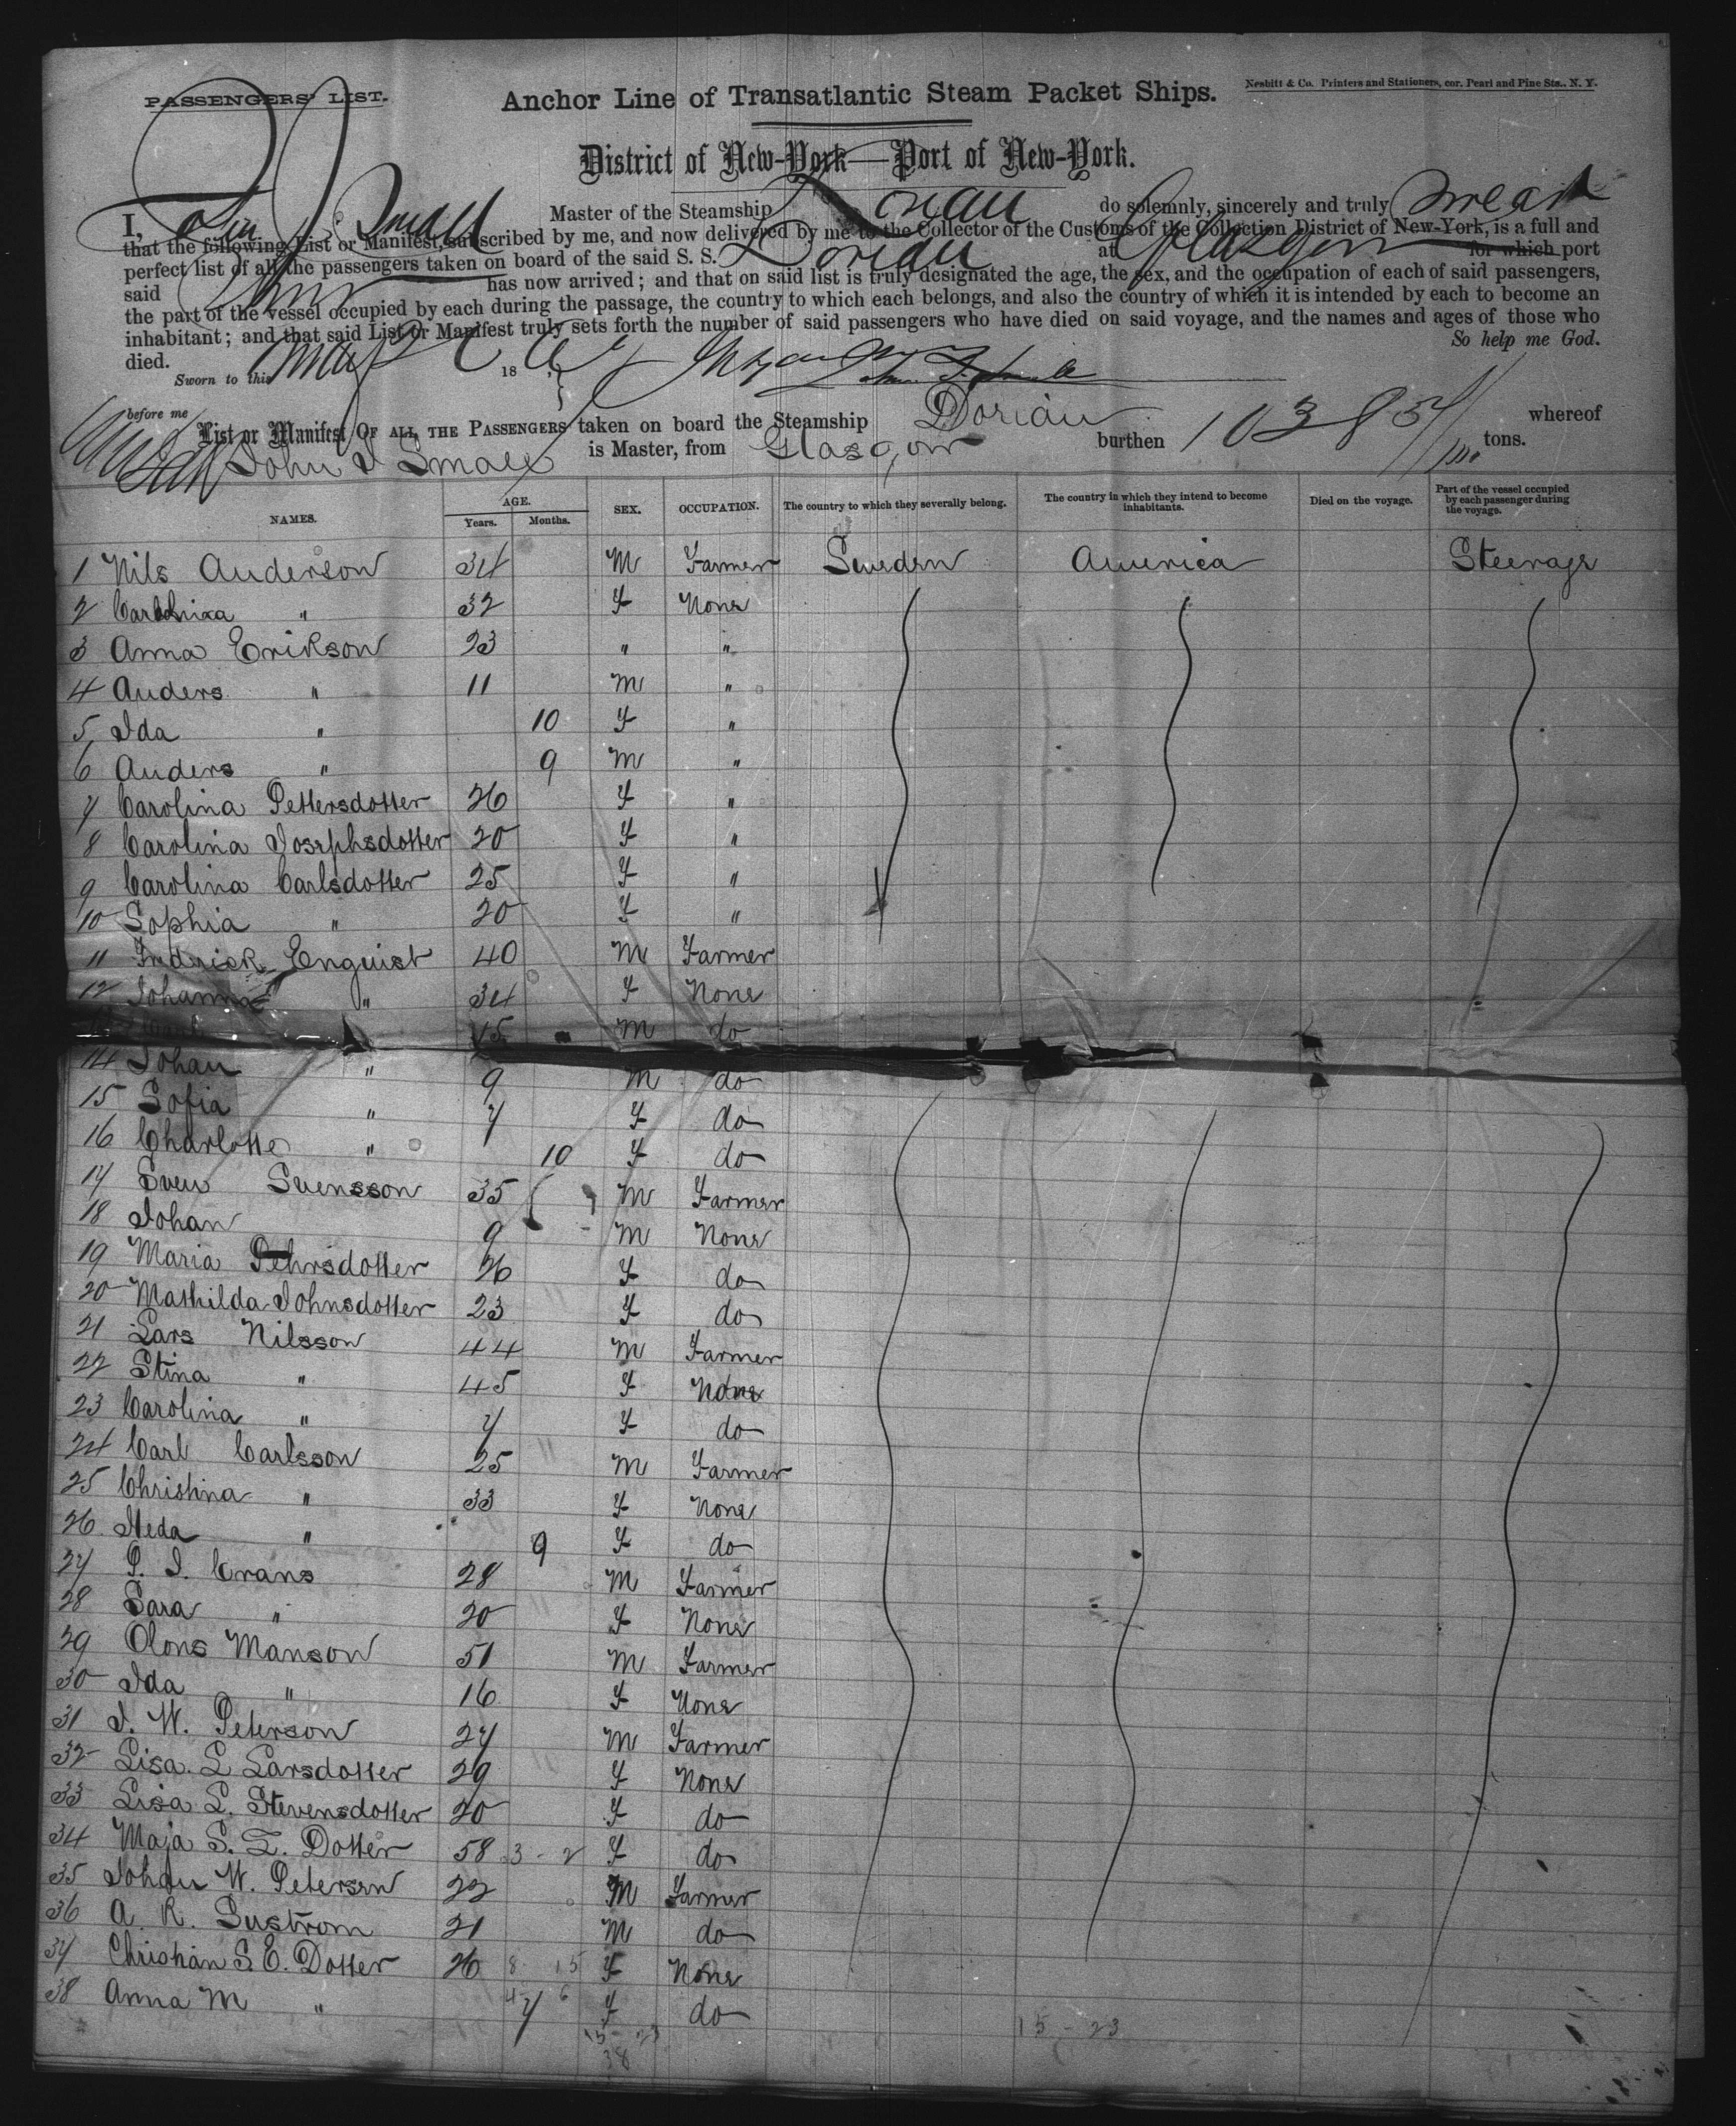 PASSENGERS' LIST.
Anchor Line of Transatlantic Steam Packet Ships.
Nesbitt & Co. Printers and Stationers, cor. Pearl and Pine Sts., N. Y.
District of New-York—Port of New-York.
I, John J Small Master of the Steamship Dorian do solemnly, sincerely and truly Swear
that the following List or Manifest, subscribed by me, and now delivered by me to the Collector of the Customs of the Collection District of New-York, is a full and
perfect list of all the passengers taken on board of the said S. S. Dorian at Glasgow for which port
said Ship has now arrived; and that on said list is truly designated the age, the sex, and the occupation of each of said passengers,
the part of the vessel occupied by each during the passage, the country to which each belongs, and also the country of which it is intended by each to become an
inhabitant; and that said List or Manifest truly sets forth the number of said passengers who have died on said voyage, and the names and ages of those who
died. So help me God.
Sworn to this May 18
before me
List or Manifest OF ALL THE PASSENGERS taken on board the Steamship Dorian burthen 1038 tons. whereof
John J Small is Master, from Glasgow
NAMES. AGE. Years. Months. SEX. OCCUPATION. The country to which they severally belong. The country in which they intend to become inhabitants. Died on the voyage. Part of the vessel occupied by each passenger during the voyage.
1 Nils Anderson 34 M Farmer Sweden America Steerage
2 " 32 F None
3 Anna Erikson 23 " "
4 Anders " 11 M "
5 Ida " 10 F "
6 Anders " 9 M "
7 Carolina Pettersdotter 26 F "
8 Carolina Josephsdotter 20 F "
9 Carolina Carlsdotter 25 F "
10 Sophia " 20 F "
11 Frederick Enquist 40 M Farmer
12 Johanna " 34 F None
15 M do
14 Johan " 9 M do
15 Sofia " 7 F do
16 Charlotte " 10 F do
17 Sven Svensson 35 M Farmer
18 Johan 9 M None
19 Maria Pehrsdotter 26 F do
20 Mathilda Johnsdotter 23 F do
21 Lars Nilsson 44 M Farmer
22 Stina " 45 F None
23 Carolina " 7 F do
24 Carl Carlsson 25 M Farmer
25 Christina " 33 F None
26 Heda " 9 F do
27 P. J. Crans 28 M Farmer
28 Sara " 20 F None
29 Olons Manson 51 M Farmer
30 Ida " 16 F None
31 J. W. Peterson 27 M Farmer
32 Lisa L Larsdotter 29 F None
33 Lisa L. Stevensdotter 20 F do
34 Maja S. L. Dotter 58 3 - 2 F do
35 Johan W. Petersen 22 M Farmer
36 A. R. Sustrom 21 M do
37 Christian S. E. Dotter 26 8 15 F None
38 Anna M " 7 4 6 F do
15 - 23 15 - 23
38